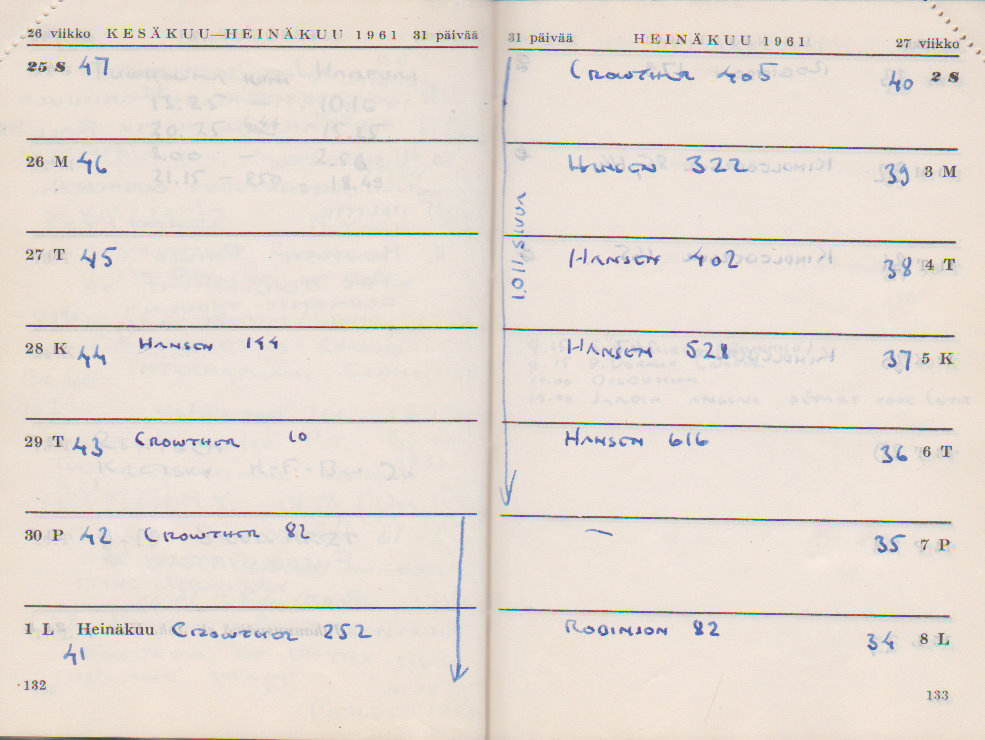 26 viikko KESÄKUU—HEINÄKUU 1961 31 päivää
25 S 47
26 M 46
27 T 45
28 K 44 HANSEN 144
29 T 43 CROWTHER 10
30 P 42 CROWTHER 82
1 L Heinäkuu CROWTHER 252
41
132
31 päivää HEINÄKUU 1961 27 viikko
CROWTHER 405 40 2 S
HANSEN 322 39 3 M
HANSEN 402 38 4 T
1011 SIVUA
HANSEN 528 37 5 K
HANSEN 616 36 6 T
— 35 7 P
ROBINSON 82 34 8 L
133